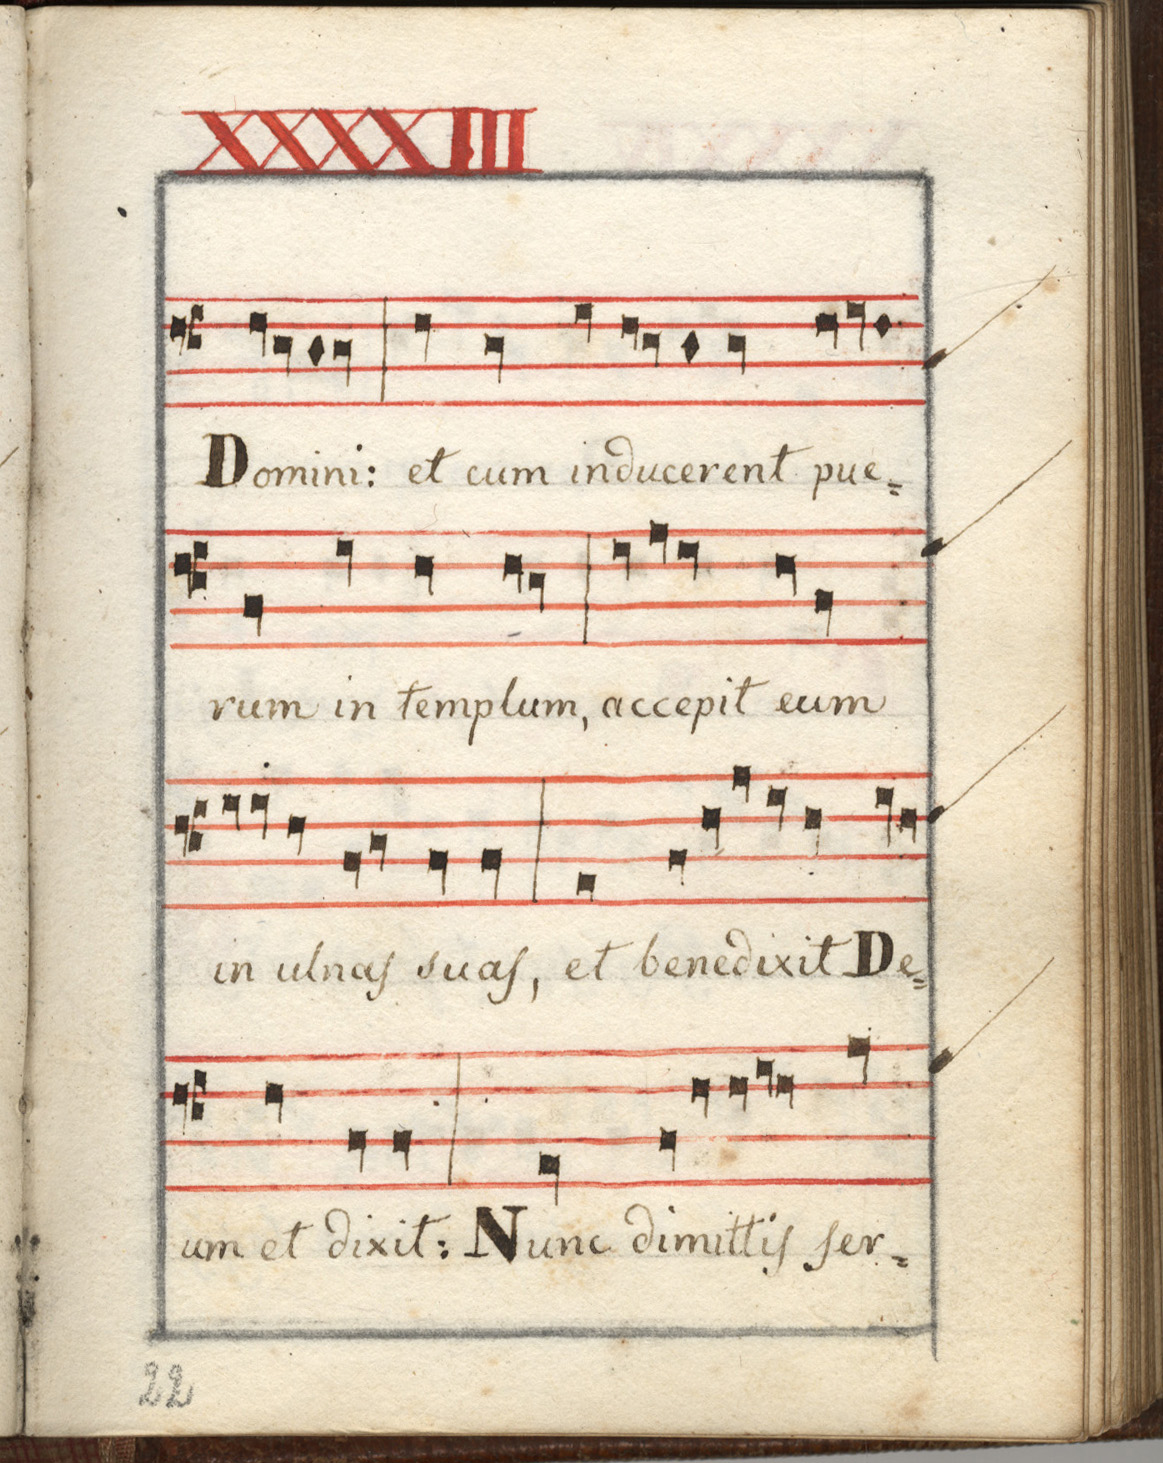 XXXXIII
Domini: et cum inducerent pue=
rum in templum, accepit eum
in ulnas suas, et benedixit De=
um et dixit: Nunc dimittis ser=
22